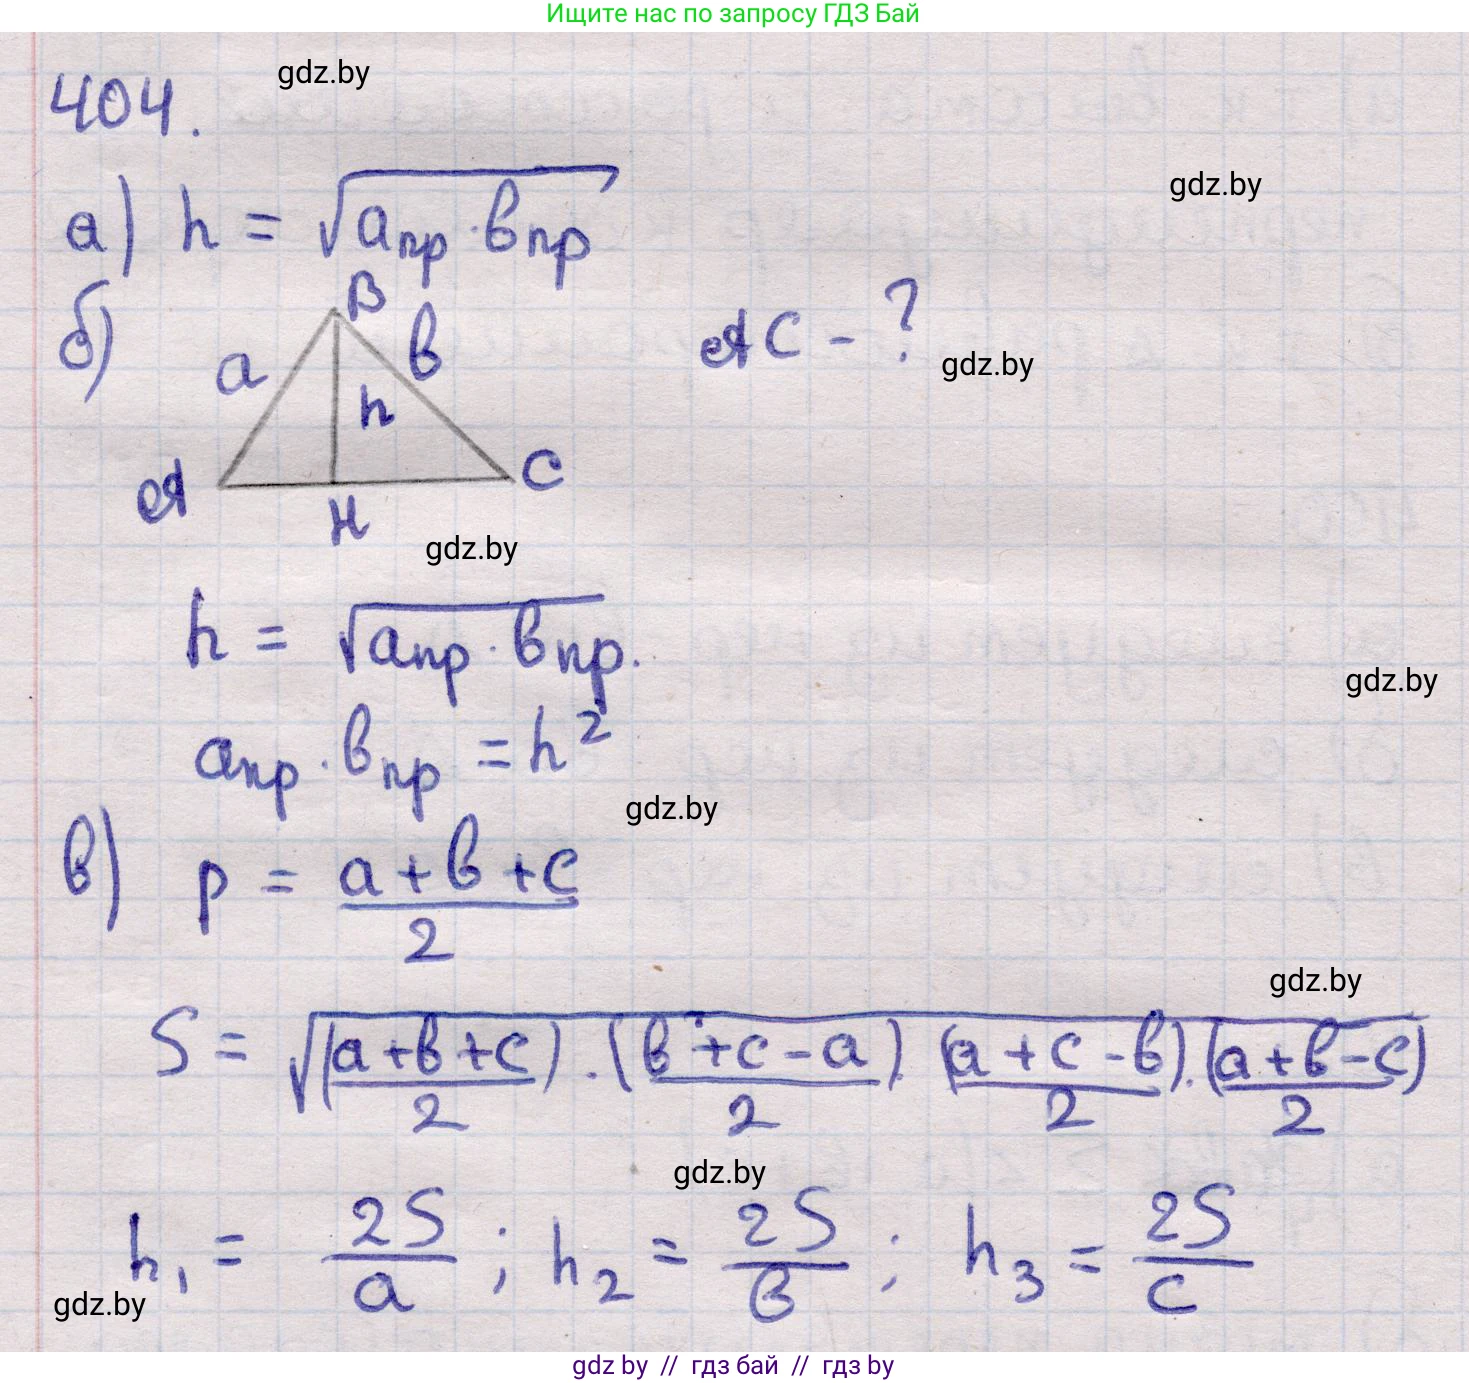 Ищите нас по запросу ГДЗ Бай
404.
gdz.by
а) h = √(aпр · bпр)
gdz.by
б)
B
a
b
h
A
H
C
AC - ?
gdz.by
gdz.by
h = √(aпр · bпр).
gdz.by
aпр · bпр = h²
gdz.by
в) p = (a+b+c)/2
gdz.by
S = √((a+b+c)/2) · ((b+c-a)/2) · ((a+c-b)/2) · ((a+b-c)/2)
gdz.by
h₁ = 2S/a ; h₂ = 2S/b ; h₃ = 2S/c
gdz.by
gdz by // гдз бай // гдз by